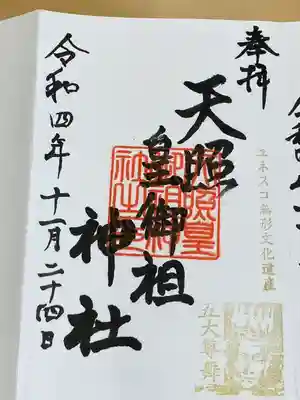 奉拝
天照
皇御祖
神社
令和四年十一月二十四日
ユネスコ無形文化遺産
五大尊舞